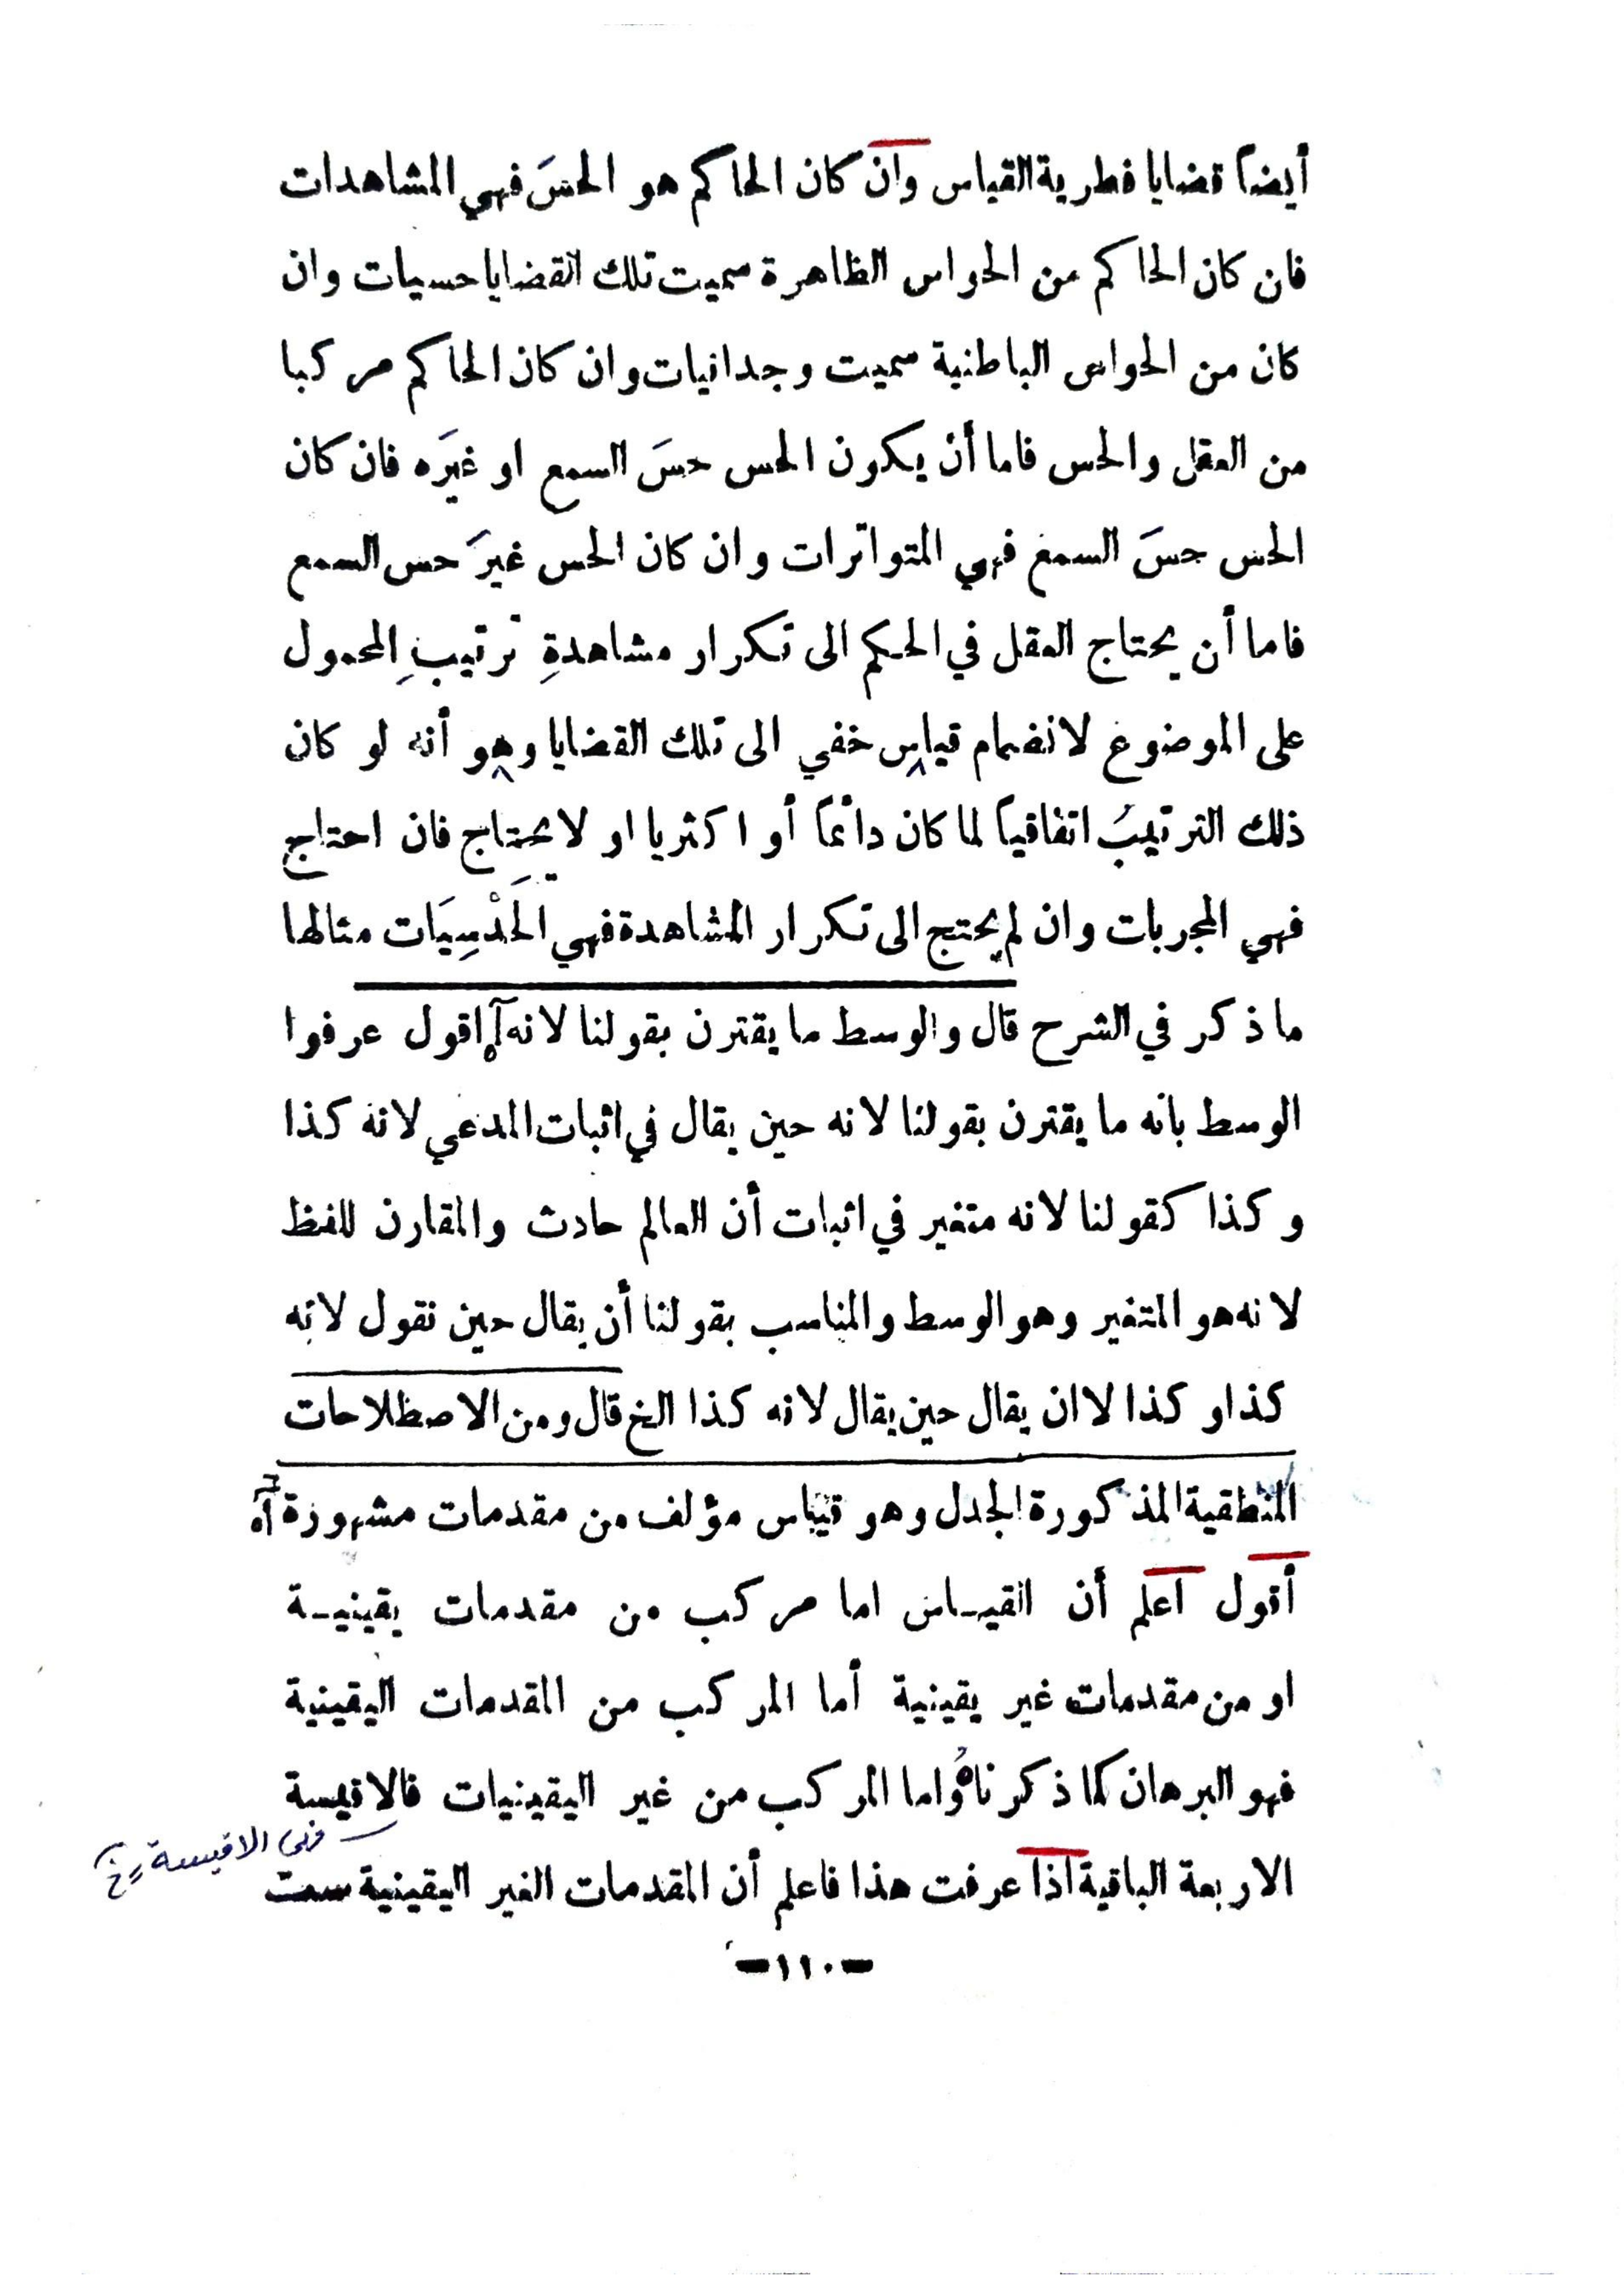 أيضاً قضايا فطرية القياس وان كان الحاكم هو الحسَ فهي المشاهدات
فان كان الحاكم من الحواس الظاهرة سميت تلك القضايا حسيات وان
كان من الحواس الباطنية سميت وجدانيات وان كان الحاكم مركبا
من العقل والحس فاما أن يكون الحس حسَ السمع او غيرَه فان كان
الحس حسَ السمع فهي المتواترات وان كان الحس غيرَ حس السمع
فاما أن يحتاج العقل في الحكم الى تكرار مشاهدةِ ترتيبِ المحمول
على الموضوع لانضمام قياس خفي الى تلك القضايا وهو أنه لو كان
ذلك الترتيبُ اتفاقياً لما كان دائماً أو اكثريا او لا يحتاج فان احتاج
فهي المجربات وان لم يحتج الى تكرار المشاهدة فهي الحَدْسِيَات مثالها
ما ذكر في الشرح قال والوسط ما يقترن بقولنا لانه آه اقول عرفوا
الوسط بانه ما يقترن بقولنا لانه حين يقال في اثبات المدعي لانه كذا
وكذا كقولنا لانه متغير في اثبات أن العالم حادث والمقارن للفظ
لانه هو المتغير وهو الوسط والمناسب بقولنا أن يقال حين نقول لانه
كذا وكذا لا ان يقال حين يقال لانه كذا الخ قال ومن الاصطلاحات
المنطقية المذكورة الجدل وهو قياس مؤلف من مقدمات مشهورة آه
أقول اعلم أن القيـاس اما مركب من مقدمات يقينيـة
او من مقدمات غير يقينية أما المركب من المقدمات اليقينية
فهو البرهان كما ذكرناهُ واما المركب من غير اليقينيات فالاقيسة
فهى الاقيسة خ
الاربعة الباقية اذا عرفت هذا فاعلم أن المقدمات الغير اليقينية ست
-١١٠-